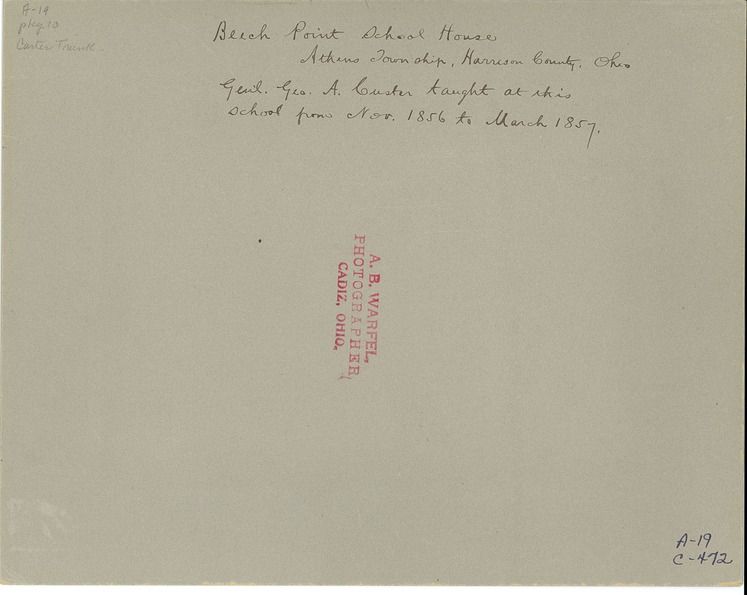 A-19
pkg 10
Custer Trunk
Beech Point School House
Athens Township, Harrison County, Ohio
Genl. Geo. A. Custer taught at this
school from Nov. 1856 to March 1857.
A. B. WARFEL,
PHOTOGRAPHER,
CADIZ, OHIO.
A-19
C-472